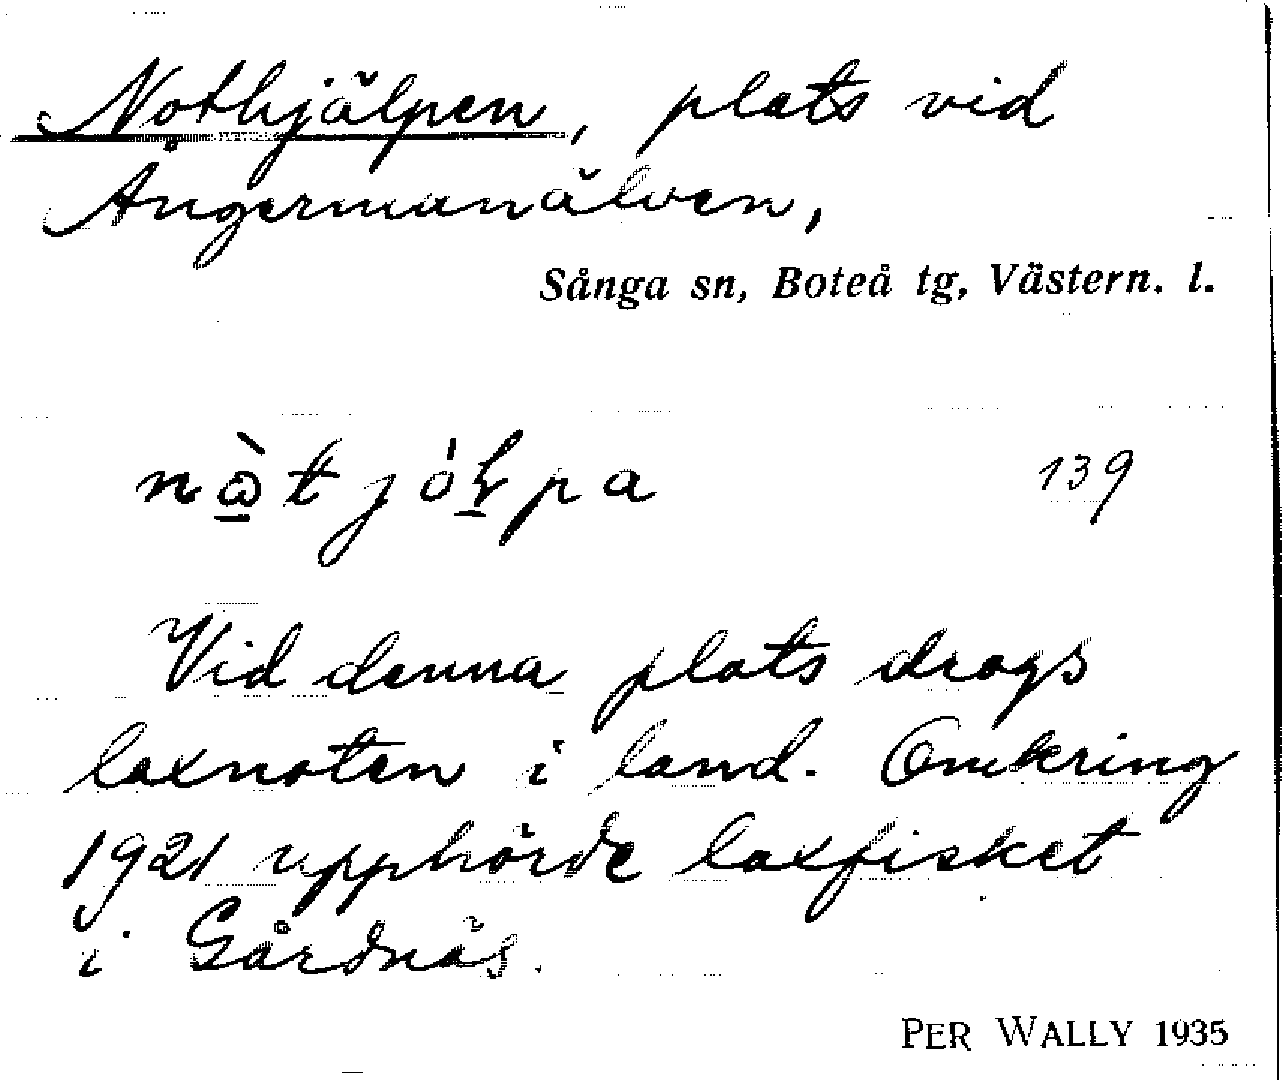 Nothjälpen, plats vid
Ångermanälven,
Sånga sn, Boteå tg, Västern. l.
139
Vid denna plats drogs
laxnoten i land. Omkring
1921 upphörde laxfisket
i Gårdnäs.
PER WALLY 1935